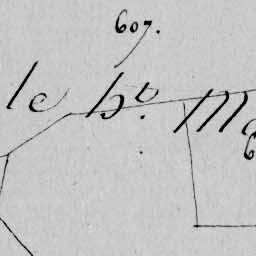 607.
le bt. Ma
6